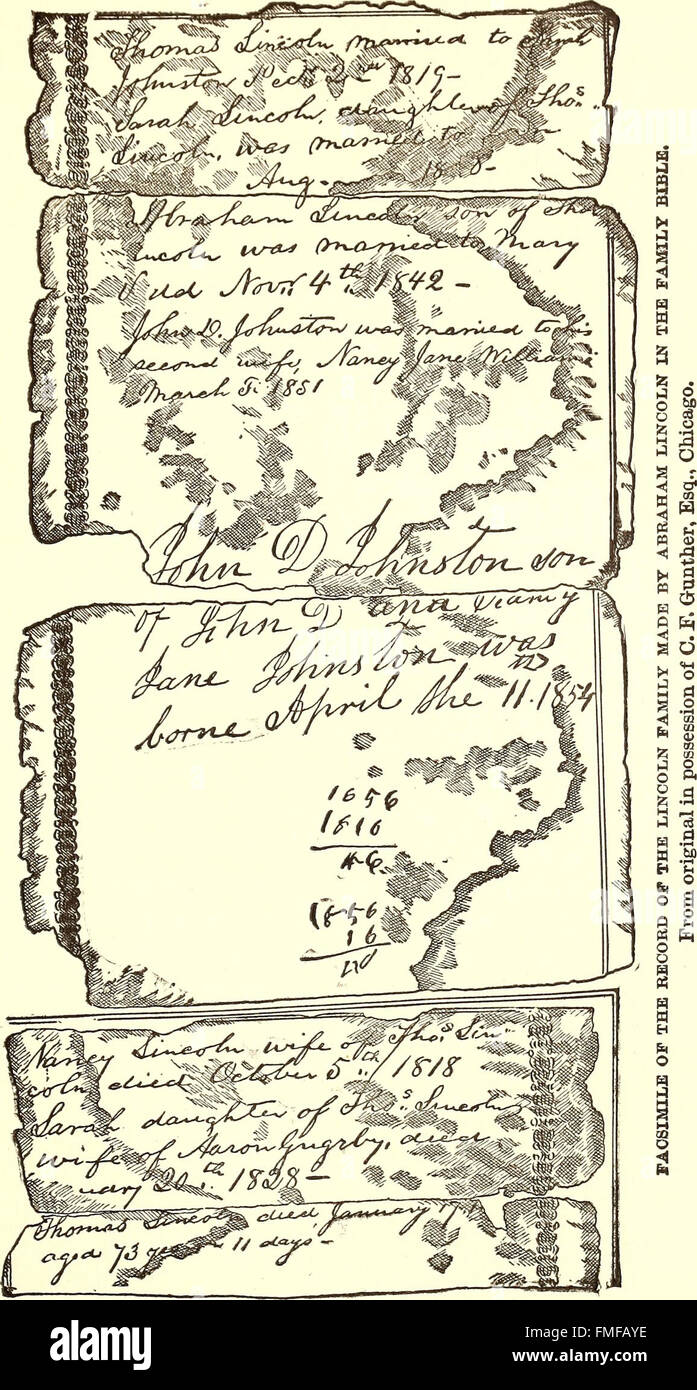 Thomas Lincoln married to Sarah
Johnston Decr 2nd 1819—
Sarah Lincoln, daughter of Thos.
Lincoln, was married to
Aug. 18
Abraham Lincoln son of Thos
Lincoln was married to Mary
Novr. 4th. 1842—
John D. Johnston was married to his
second wife, Nancy Jane Williams
March 1851
John D Johnston son
of John D and Nancy
Jane Johnston was
borne April the 11.th 1854
1856
1816
46
1856
16
Nancy Lincoln wife of Thos. Lin-
coln, died October 5th. 1818
Sarah daughter of Thos. Lincoln,
wife of Aaron Grigsby, died
uary 20th. 1828—
Thomas Lincoln died January 17
aged 73 11 days—
FACSIMILE OF THE RECORD OF THE LINCOLN FAMILY MADE BY ABRAHAM LINCOLN IN THE FAMILY BIBLE.
From original in possession of C. F. Gunther, Esq., Chicago.
alamy stock photo
FMFAYE
www.alamy.com